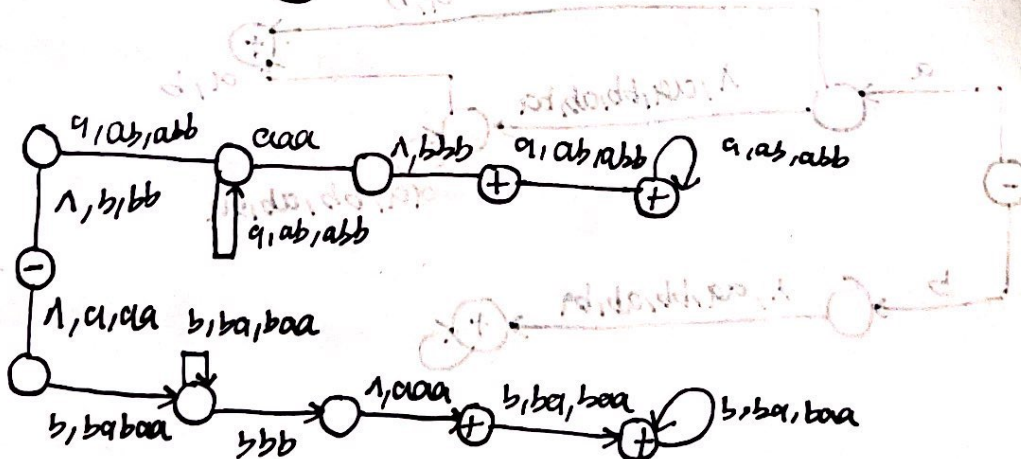 a, ab, abb
aaa
Λ, bbb
a, ab, abb
a, ab, abb
Λ, b, bb
a, ab, abb
+
+
-
Λ, a, aa
b, ba, baa
b, babaa
bbb
Λ, aaa
b, ba, baa
b, ba, baa
+
+